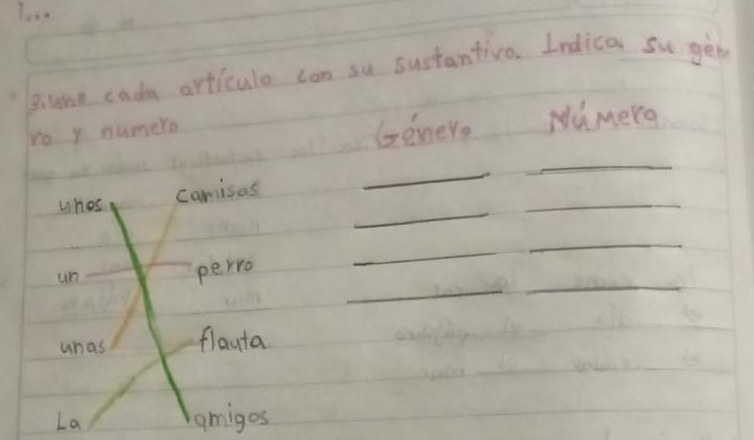 1...
3. une cada artículo con su sustantivo. Indica su géne
ro y numero
Género Número
unos camisas
un perro
unas flauta
La amigos